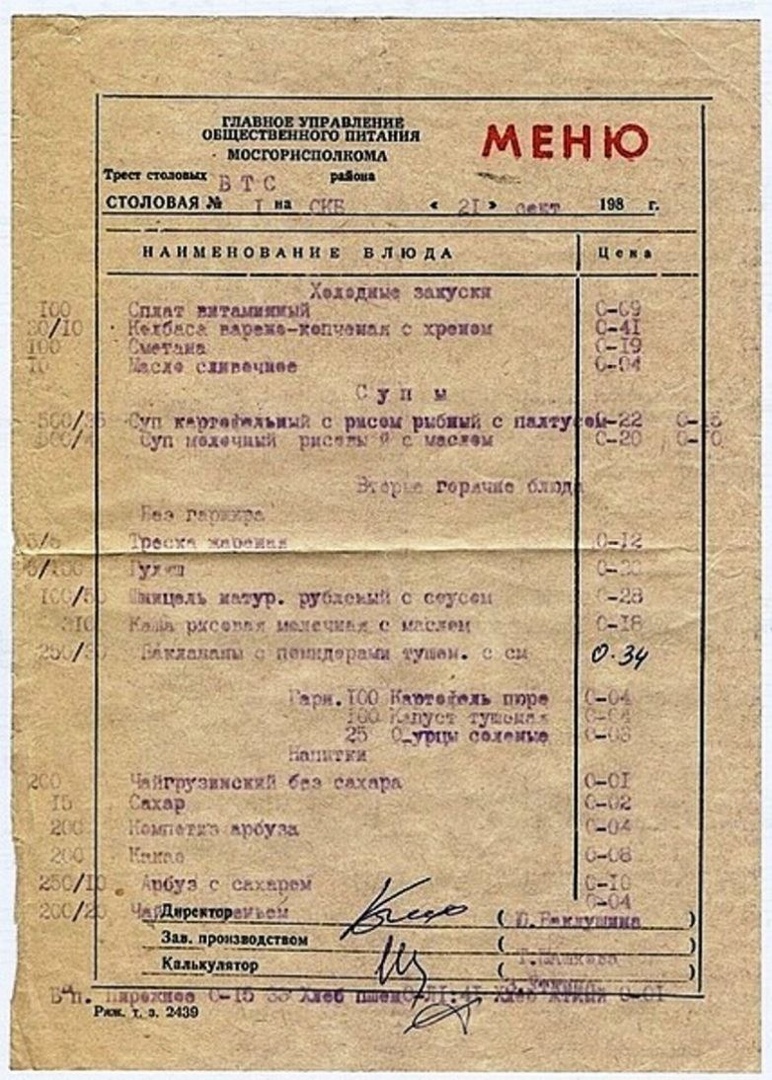 ГЛАВНОЕ УПРАВЛЕНИЕ
ОБЩЕСТВЕННОГО ПИТАНИЯ
МОСГОРИСПОЛКОМА
МЕНЮ
Трест столовых ВТС района
СТОЛОВАЯ № I на СКБ « 21 » сент 198 г.
НАИМЕНОВАНИЕ БЛЮДА Цена
Холодные закуски
100 Сплат витаминный 0-09
30/10 Колбаса варено-копченая с хреном 0-41
100 Сметана 0-19
10 Масло сливочное 0-04
Супы
500/35 Суп картофельный с рисом рыбный с палтусом-22
Суп молочный рисовый с маслом 0-20 0-10
Вторые горячие блюда
Без гарнира
Треска жареная 0-12
Гуляш
100/50 Шницель натур. рубленый с соусом 0-28
310 Каша рисовая молочная с маслом 0-18
250/30 Баклажаны с помидорами тушен. с см 0-34
Гарн. 100 Картофель пюре 0-04
100 Капуст тушеная 0-04
25 О_урцы соленые 0-03
Напитки
200 Чайгрузинский без сахара 0-01
15 Сахар 0-02
200 Компотиз арбуза 0-04
200 Какао 0-08
250/10 Арбуз с сахаром 0-10
200/25 Чай 0-04
Директор ( Ю.Ваклушина )
Зав. производством ( Т.Машкова )
Калькулятор ( )
Пирожное 0-15 33 Хлеб 0-01
Ряж. т. з. 2439